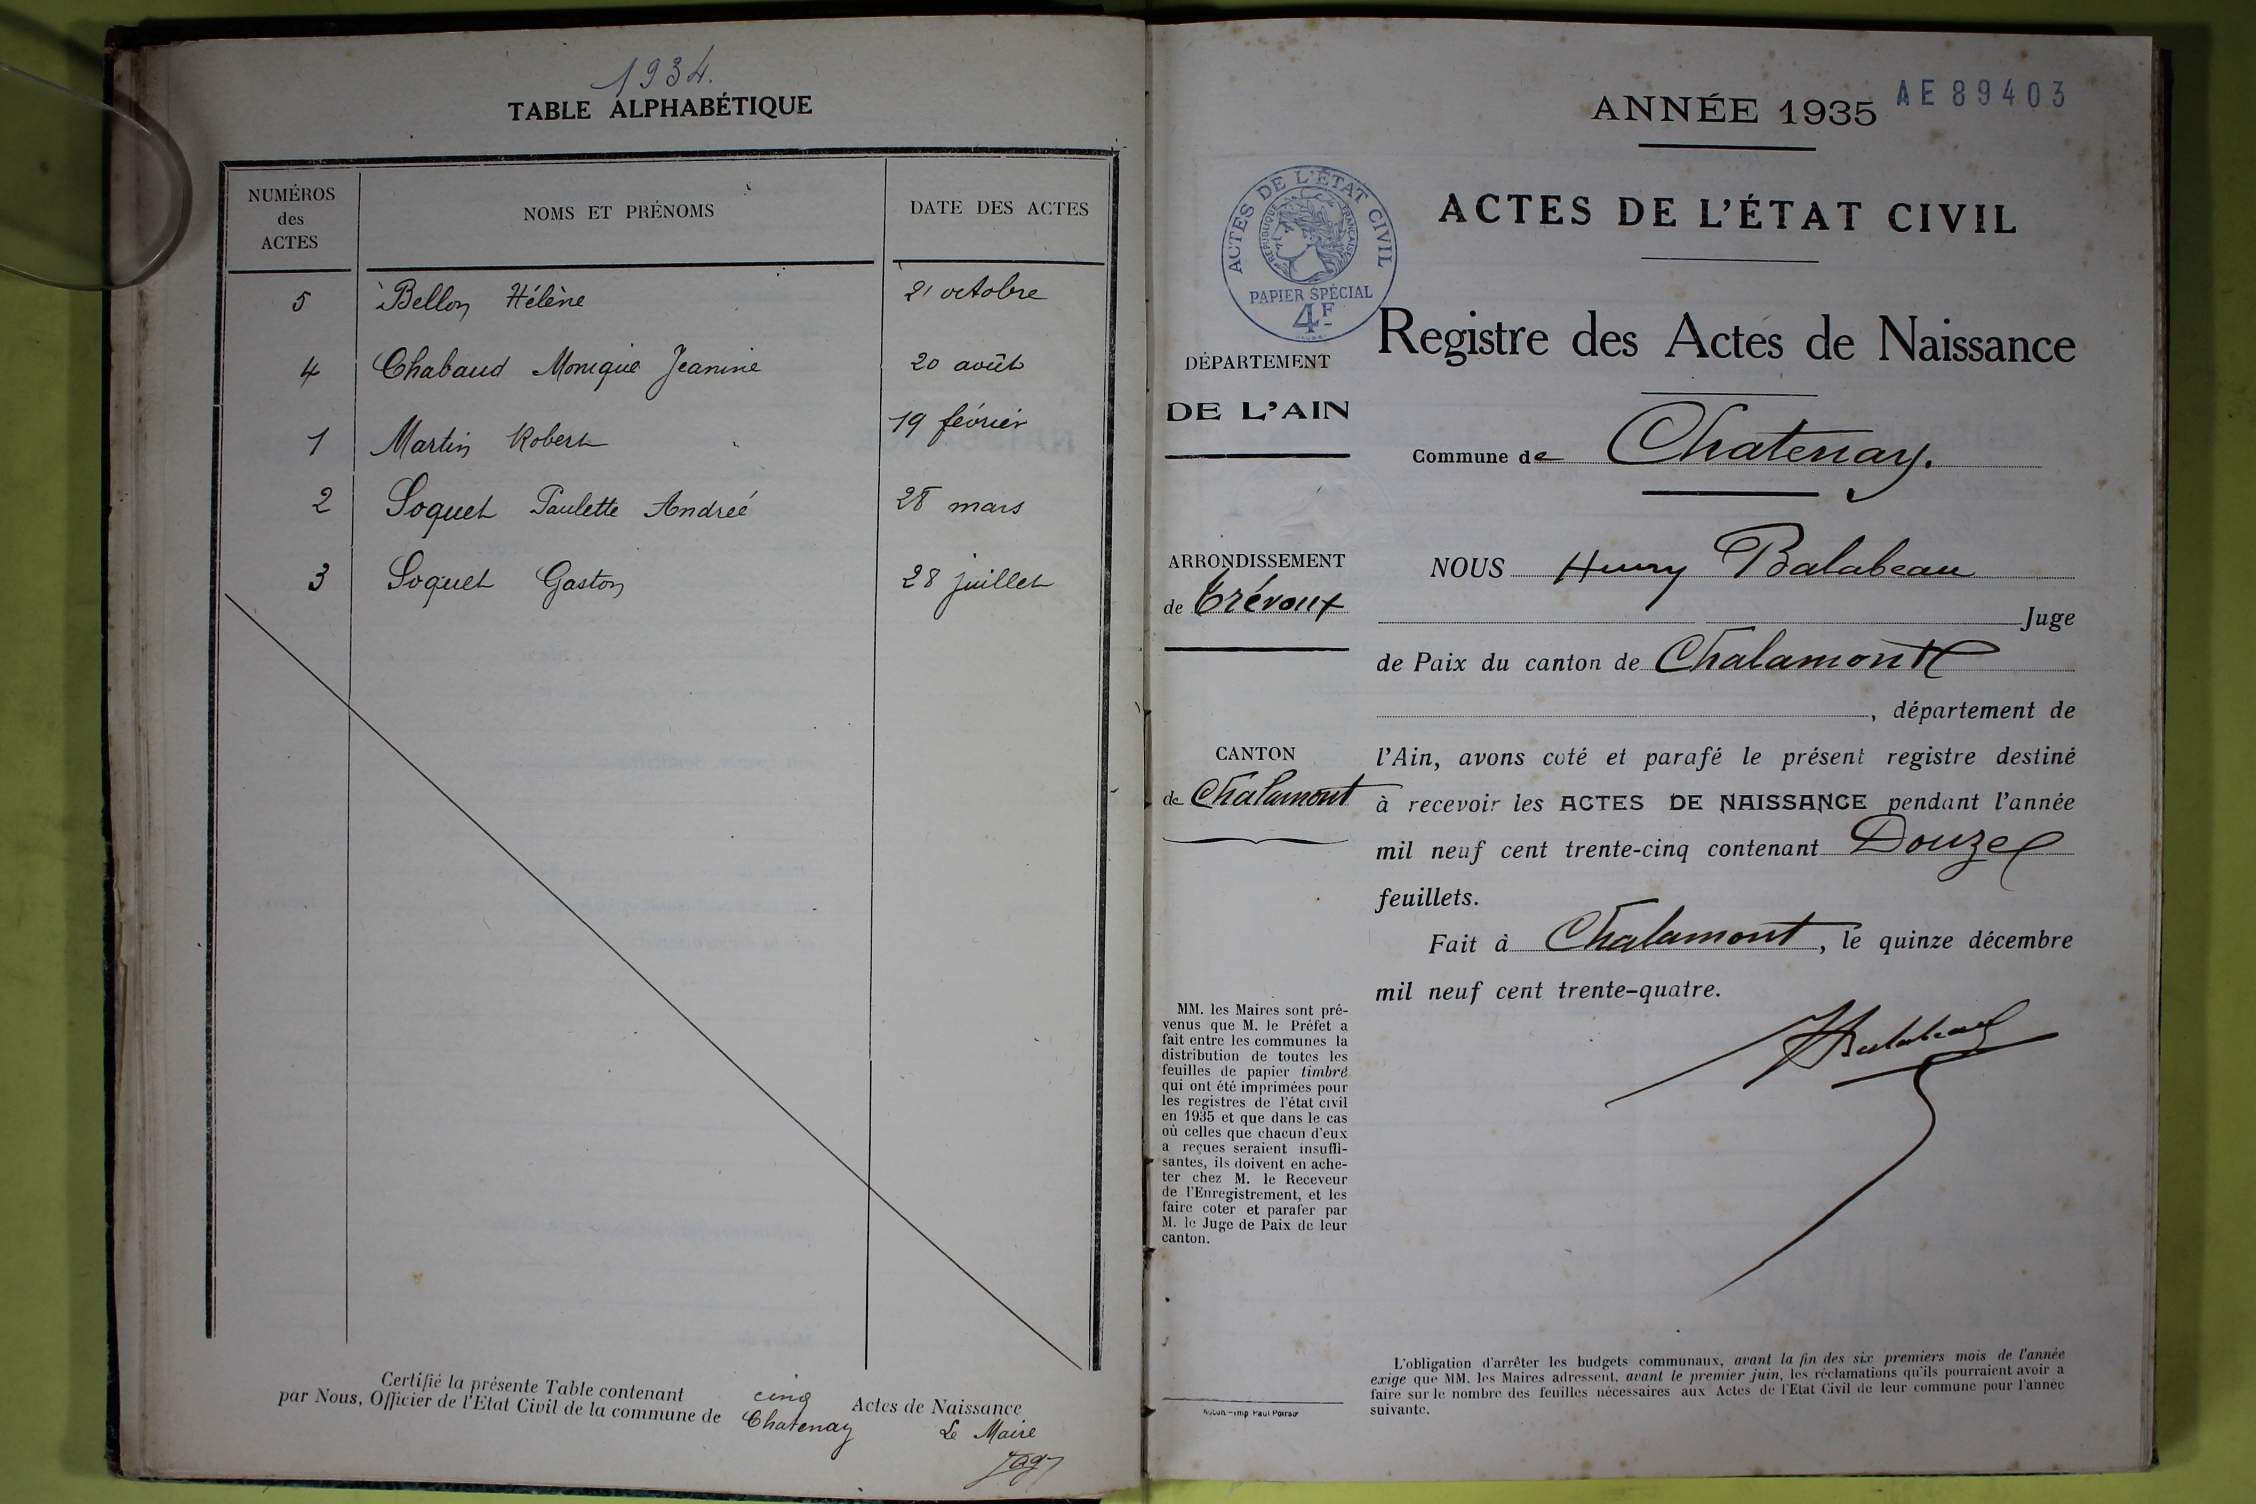 1934.
TABLE ALPHABÉTIQUE
NUMÉROS
des
ACTES
NOMS ET PRÉNOMS
DATE DES ACTES
5 Bellon Hélène 21 octobre
4 Chabaud Monique Jeanine 20 août
1 Martin Robert 19 février
2 Soquet Paulette Andreé 28 mars
3 Soquet Gaston 28 juillet
Certifié la présente Table contenant cinq Actes de Naissance
par Nous, Officier de l'Etat Civil de la commune de Chatenay
Le Maire
ANNÉE 1935
AE 89403
ACTES DE L'ÉTAT CIVIL
ACTES DE L'ÉTAT CIVIL
RÉPUBLIQUE FRANÇAISE
PAPIER SPÉCIAL
4F
Registre des Actes de Naissance
DÉPARTEMENT
DE L'AIN
Commune de Chatenay.
ARRONDISSEMENT
de Trévoux
CANTON
de Chalamont
NOUS Henry Balabeau
Juge
de Paix du canton de Chalamont
, département de
l'Ain, avons coté et parafé le présent registre destiné
à recevoir les ACTES DE NAISSANCE pendant l'année
mil neuf cent trente-cinq contenant Douze
feuillets.
Fait à Chalamont, le quinze décembre
mil neuf cent trente-quatre.
HBalabeau
MM. les Maires sont pré-
venus que M. le Préfet a
fait entre les communes la
distribution de toutes les
feuilles de papier timbré
qui ont été imprimées pour
les registres de l'état civil
en 1935 et que dans le cas
où celles que chacun d'eux
a reçues seraient insuffi-
santes, ils doivent en ache-
ter chez M. le Receveur
de l'Enregistrement, et les
faire coter et parafer par
M. le Juge de Paix de leur
canton.
L'obligation d'arrêter les budgets communaux, avant la fin des six premiers mois de l'année
exige que MM. les Maires adressent, avant le premier juin, les réclamations qu'ils pourraient avoir a
faire sur le nombre des feuilles nécessaires aux Actes de l'Etat Civil de leur commune pour l'année
suivante.